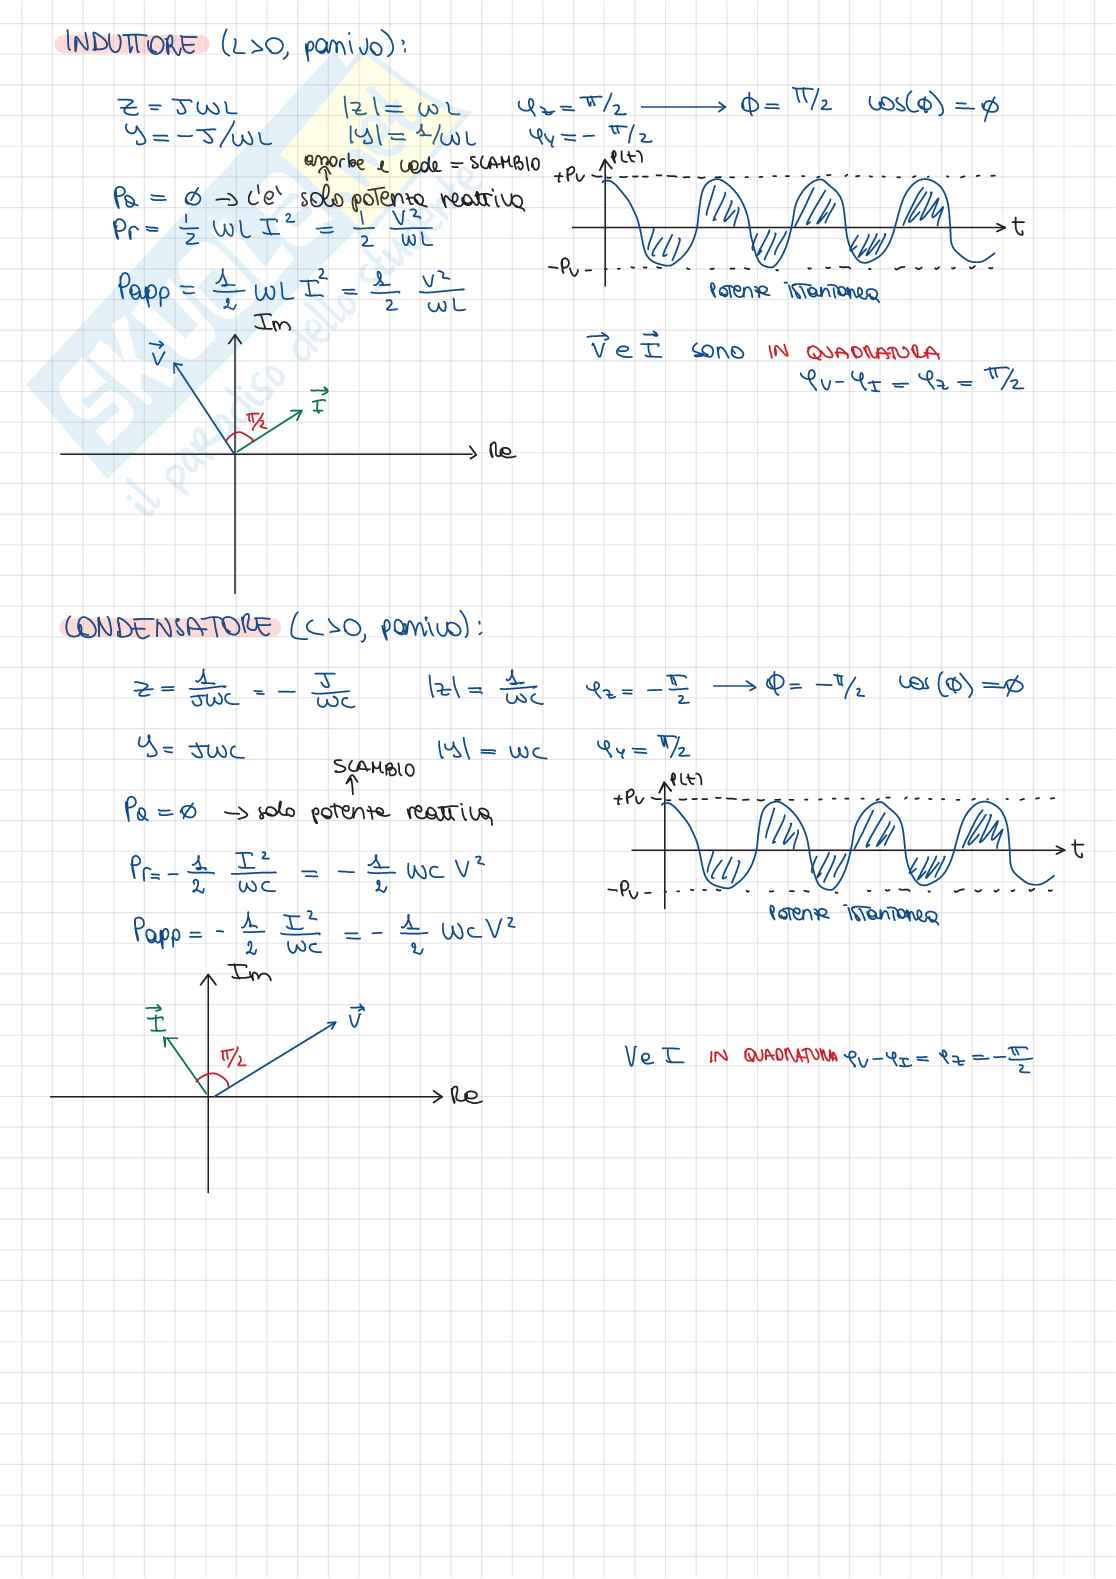 INDUTTORE (L>0, passivo):
Z = JωL |Z| = ωL φz = π/2 ⟶ Φ = π/2 cos(Φ) = Ø
Y = -J/ωL |Y| = 1/ωL φY = - π/2
assorbe e cede = SCAMBIO
Pa = Ø → c'è solo potenza reattiva
Pr = 1/2 ωL I² = 1/2 V²/ωL
Papp = 1/2 ωL I² = 1/2 V²/ωL
P(t)
+Pv
-Pv
t
POTENZA ISTANTANEA
Im
V
I
π/2
Re
V e I SONO IN QUADRATURA
φV - φI = φZ = π/2
CONDENSATORE (C>0, passivo):
Z = 1/JωC = - J/ωC |Z| = 1/ωC φz = - π/2 ⟶ Φ = -π/2 cos(Φ) = Ø
Y = JωC |Y| = ωC φY = π/2
SCAMBIO
Pa = Ø → solo potenza reattiva
Pr = - 1/2 I²/ωC = - 1/2 ωC V²
Papp = - 1/2 I²/ωC = - 1/2 ωC V²
P(t)
+Pv
-Pv
t
POTENZA ISTANTANEA
Im
I
V
π/2
Re
V e I IN QUADRATURA φV - φI = φZ = - π/2
SKUOLA.net
il paradiso dello studente